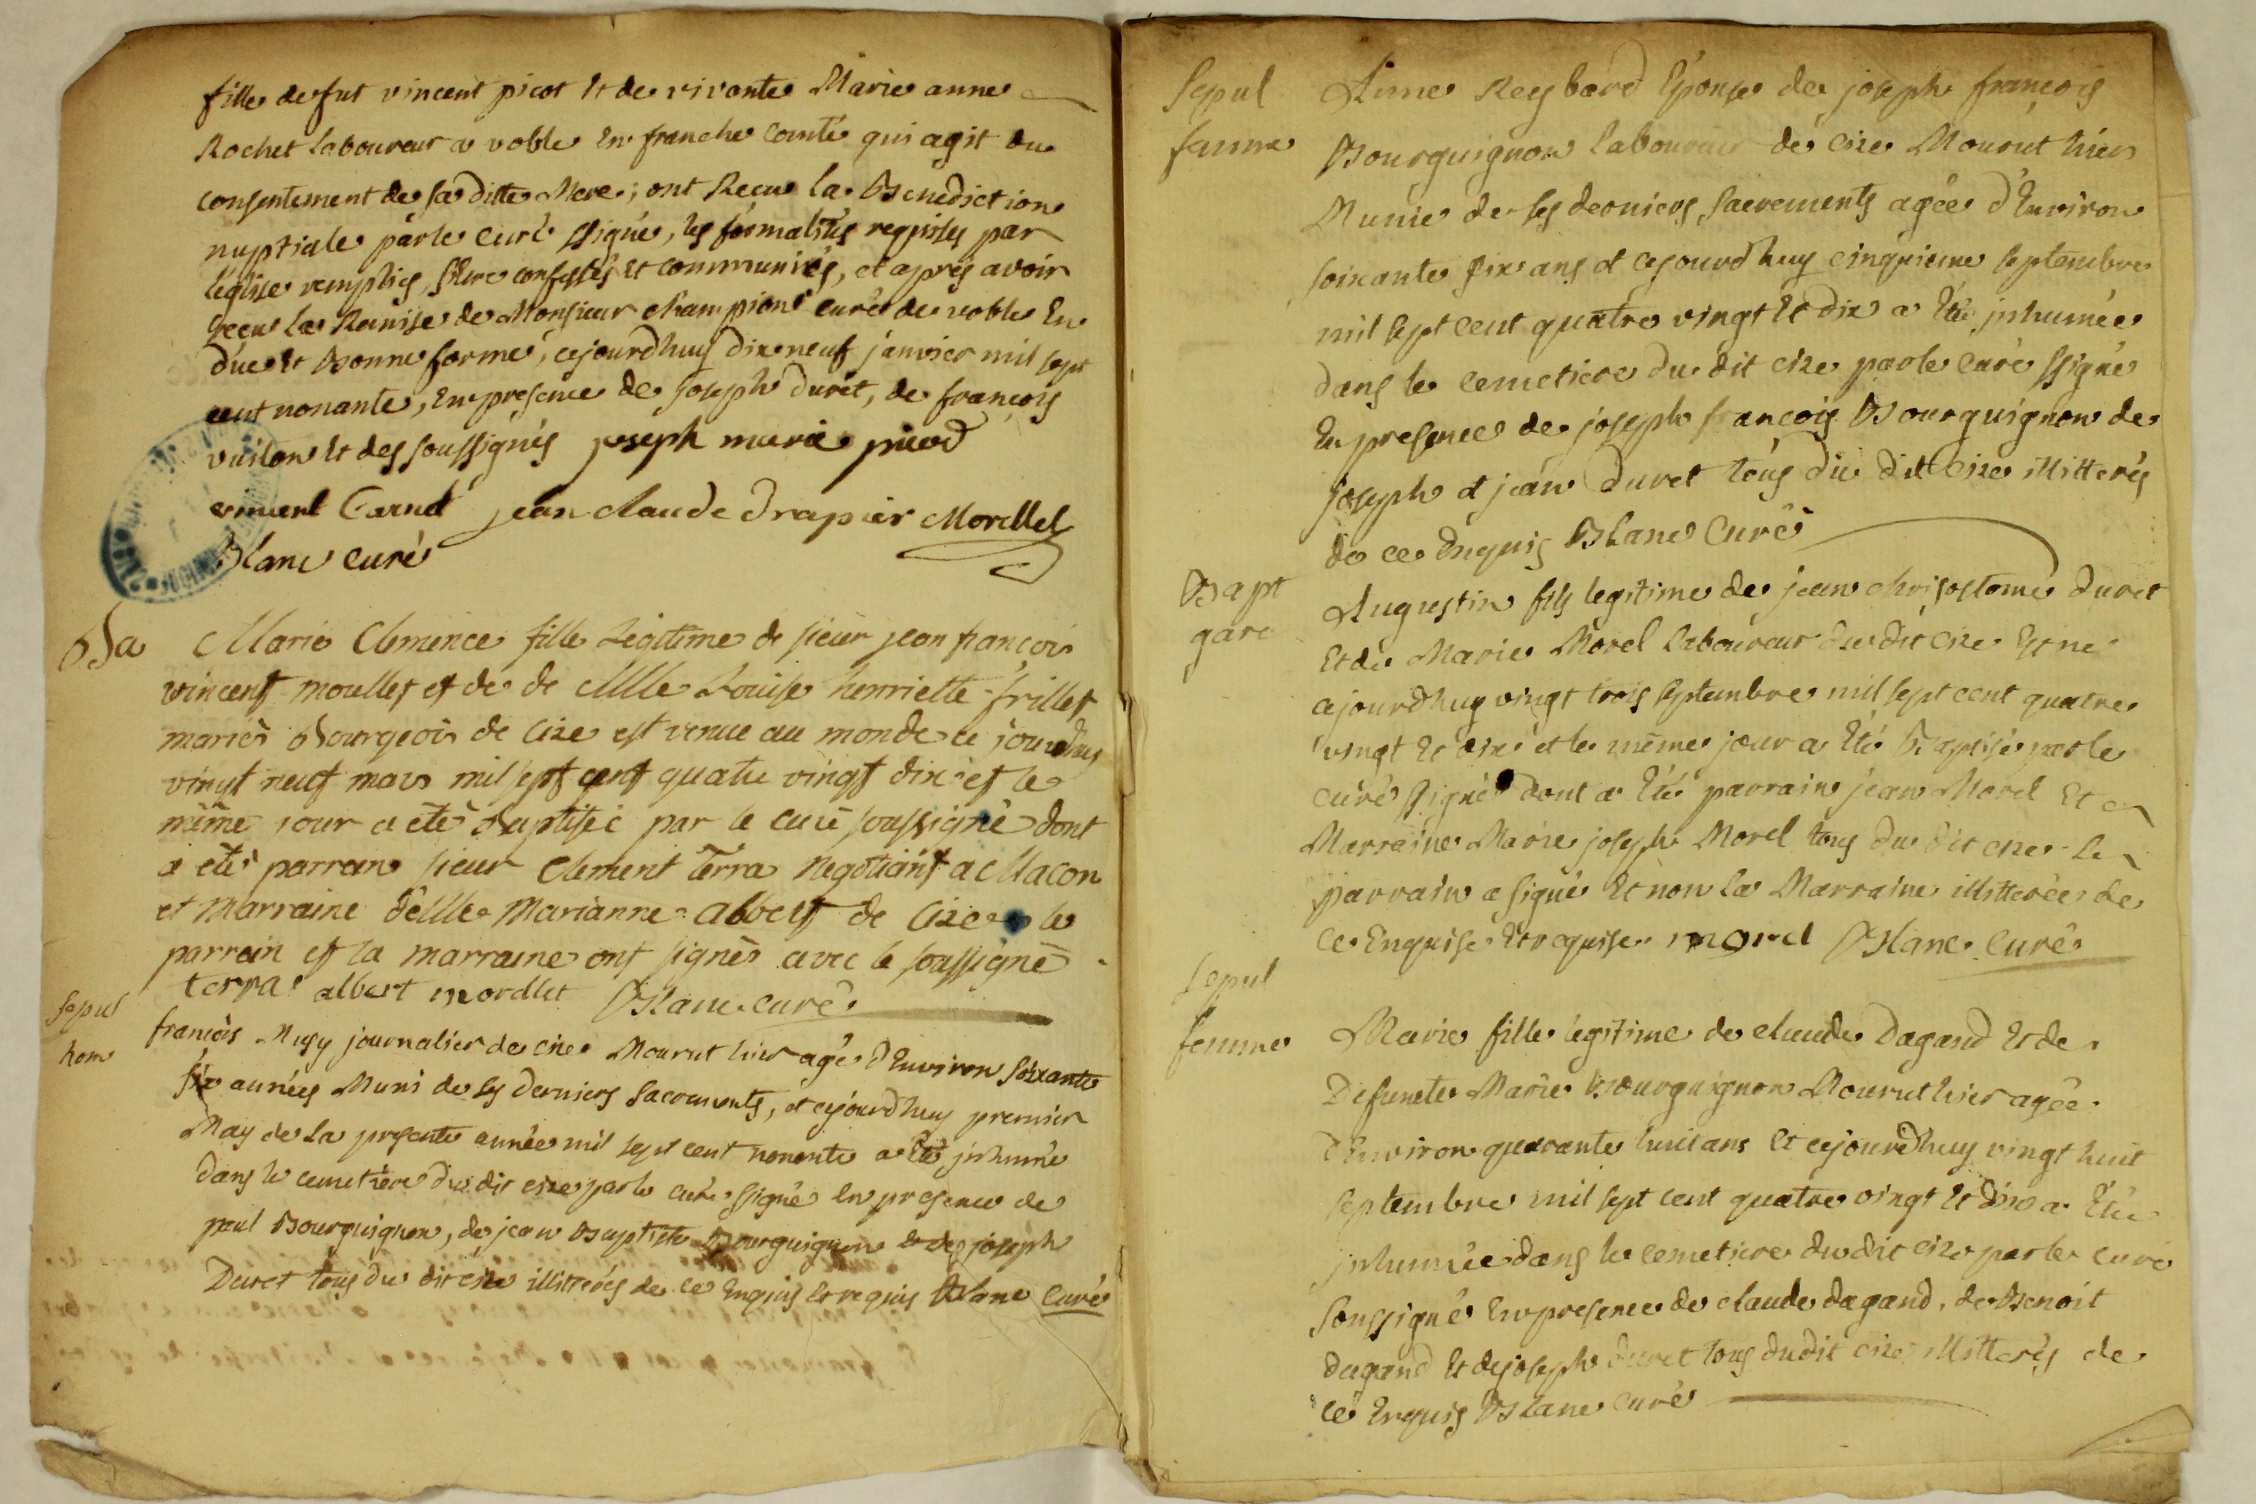 fille defut vincent picot Et de vivante Marie anne
Rochet laboureur a voble En franche comté qui agit du
consentement de sa ditte Mere; ont Recue la Benediction
nuptiale parle curé ssigné, les formalités requises par
l'église remplies, s'être confessés Et communiés, et après avoir
Receu la Remise de Monsieur champion curé de voble En
düe Et Bonne forme, cejourdhuy dixneuf janvier mil sept
cent nonante, En presence de joseph duret, de françois
vuilon Et des soussignés joseph marie picod
vincent jean claude drapier Morellet
Blanc curé
Ba Marie Clemence fille Légitime de sieur jean françois
vincent moullet et de de Mlle Louise henriette frillet
mariés Bourgeois de Cize est venue au monde ce jourdhuy
vingt neuf mars mil sept cent quatre vingt dix et le
même jour a été Baptisée par le curé soussigné dont
a été parrain sieur Clement Terra Négotiant a Macon
et Marraine Delle Marianne Albert de Cize le
parrain et la marraine ont signés avec le soussigné
terra albert mordlet Blanc curé
Sepul françois Mugy journalier de cize Mourut hier agé d'Environ soixante
hom six années Muni de ses derniers sacrements, et cejourdhuy premier
May de la presente année mil sept cent nonente a Eté jnhumé
dans le cemetière du dit cize parle curé ssigné En presence de
paul Bourguignon, de jean Baptiste Bourguignon & de joseph
Duret tous du dit cize illitterés de ce Enquis Et requis Blanc Curé
Sepul Anne Reybard Epouse de joseph françois
femme Bourguignon laboureur de cize Mourut hier
Munie de ses derniers sacrements agée d'Environ
soixante six ans et cejourd huy cinquieme septembre
mil sept cent quatre vingt Et dix a Eté jnhumée
dans le cemetiere du dit cize parle curé ssigné
En presence de joseph françois Bourguignon de
joseph et jean Duret tous du dit Cize illitterés
de ce Enquis Blanc Curé
Bapt Augustin fils legitime de jean chrisostome duret
garc Et de Marie Morel laboureur du dit cize Est né
cejourdhuy vingt trois septembre mil sept cent quatre
vingt Et dix et le même jour a Eté Baptisé par le
curé ssigné dont a Eté parrain jean Morel Et
Marraine Marie joseph Morel tous du dit cize le
parrain a signé Et non la Marraine illitterée de
ce Enquise Et requise morel Blanc Curé
Sepul
femme Marie fille legitime de claude Dagand Et de
Defuncte Marie Bourguignon Mourut hier agée
d'Environ quarante huit ans Et cejourdhuy vingt huit
septembre mil sept cent quatre vingt Et dix a Eté
jnhumée dans le cemetiere dudit cize parle curé
soussigné En presence de claude dagand, de Benoit
dagand Et de joseph duret tous dudit cize illitterés de
ce Enquis Blanc curé